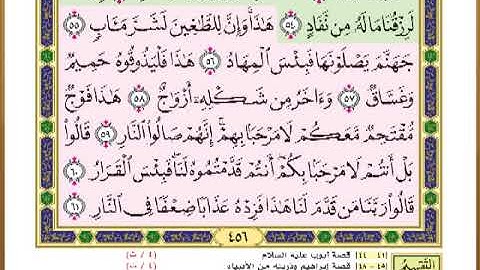 لَرِزْقُنَا مَا لَهُۥ مِن نَّفَادٍ ٥٤ هَٰذَا ۚ وَإِنَّ لِلطَّٰغِينَ لَشَرَّ مَـَٔابٍ ٥٥
جَهَنَّمَ يَصْلَوْنَهَا فَبِئْسَ ٱلْمِهَادُ ٥٦ هَٰذَا فَلْيَذُوقُوهُ حَمِيمٌ
وَغَسَّاقٌ ٥٧ وَءَاخَرُ مِن شَكْلِهِۦٓ أَزْوَٰجٌ ٥٨ هَٰذَا فَوْجٌ
مُّقْتَحِمٌ مَّعَكُمْ لَا مَرْحَبًۢا بِهِمْ ۚ إِنَّهُمْ صَالُوا۟ ٱلنَّارِ ٥٩ قَالُوا۟
بَلْ أَنتُمْ لَا مَرْحَبًۢا بِكُمْ ۖ أَنتُمْ قَدَّمْتُمُوهُ لَنَا ۖ فَبِئْسَ ٱلْقَرَارُ ٦٠
قَالُوا۟ رَبَّنَا مَن قَدَّمَ لَنَا هَٰذَا فَزِدْهُ عَذَابًا ضِعْفًا فِى ٱلنَّارِ ٦١
٤٥٦
٤١ - ٤٤ قصة أيوب عليه السلام
٤٥ - ٤٨ قصة إبراهيم وذريته من الأنبياء